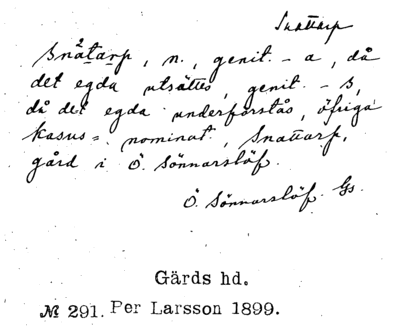 Snattarp
Snåtarp, n., genit. -a, då
det egda utsättes, genit. -s,
då det egda underförstås, öfriga
kasus = nominat. Snattarp,
gård i Ö. Sönnarslöf.
Ö. Sönnarslöf. Gs.
Gärds hd.
№ 291. Per Larsson 1899.